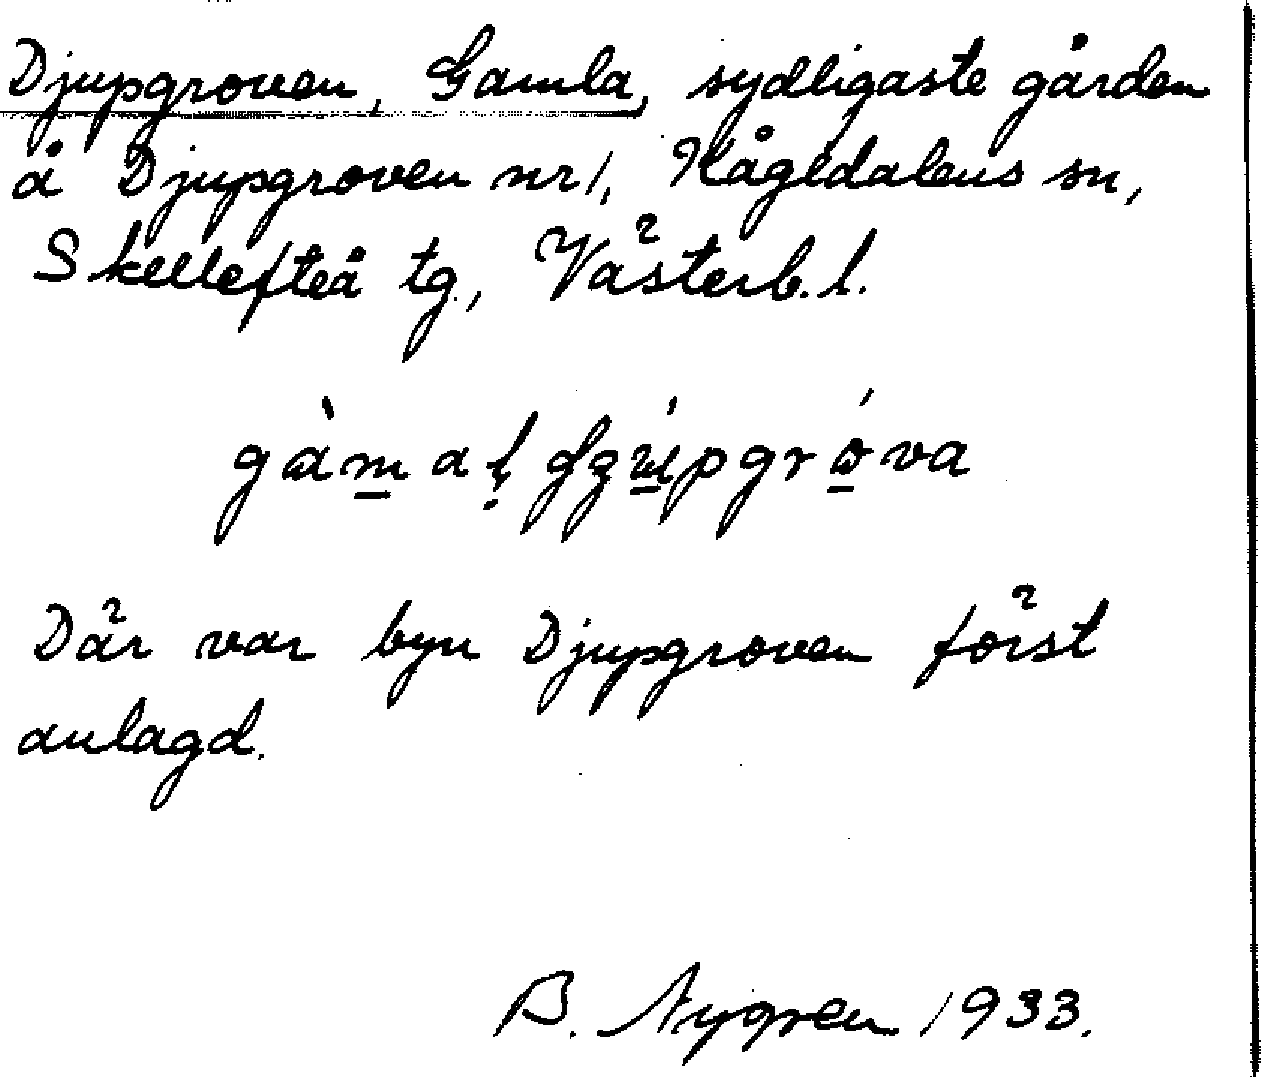 Djupgroven, Gamla, sydligaste gården
å Djupgroven nr 1, Kågedalens sn,
Skellefteå tg., Västerb. l.
Där var byn Djupgroven först
anlagd.
B. Nygren 1933.